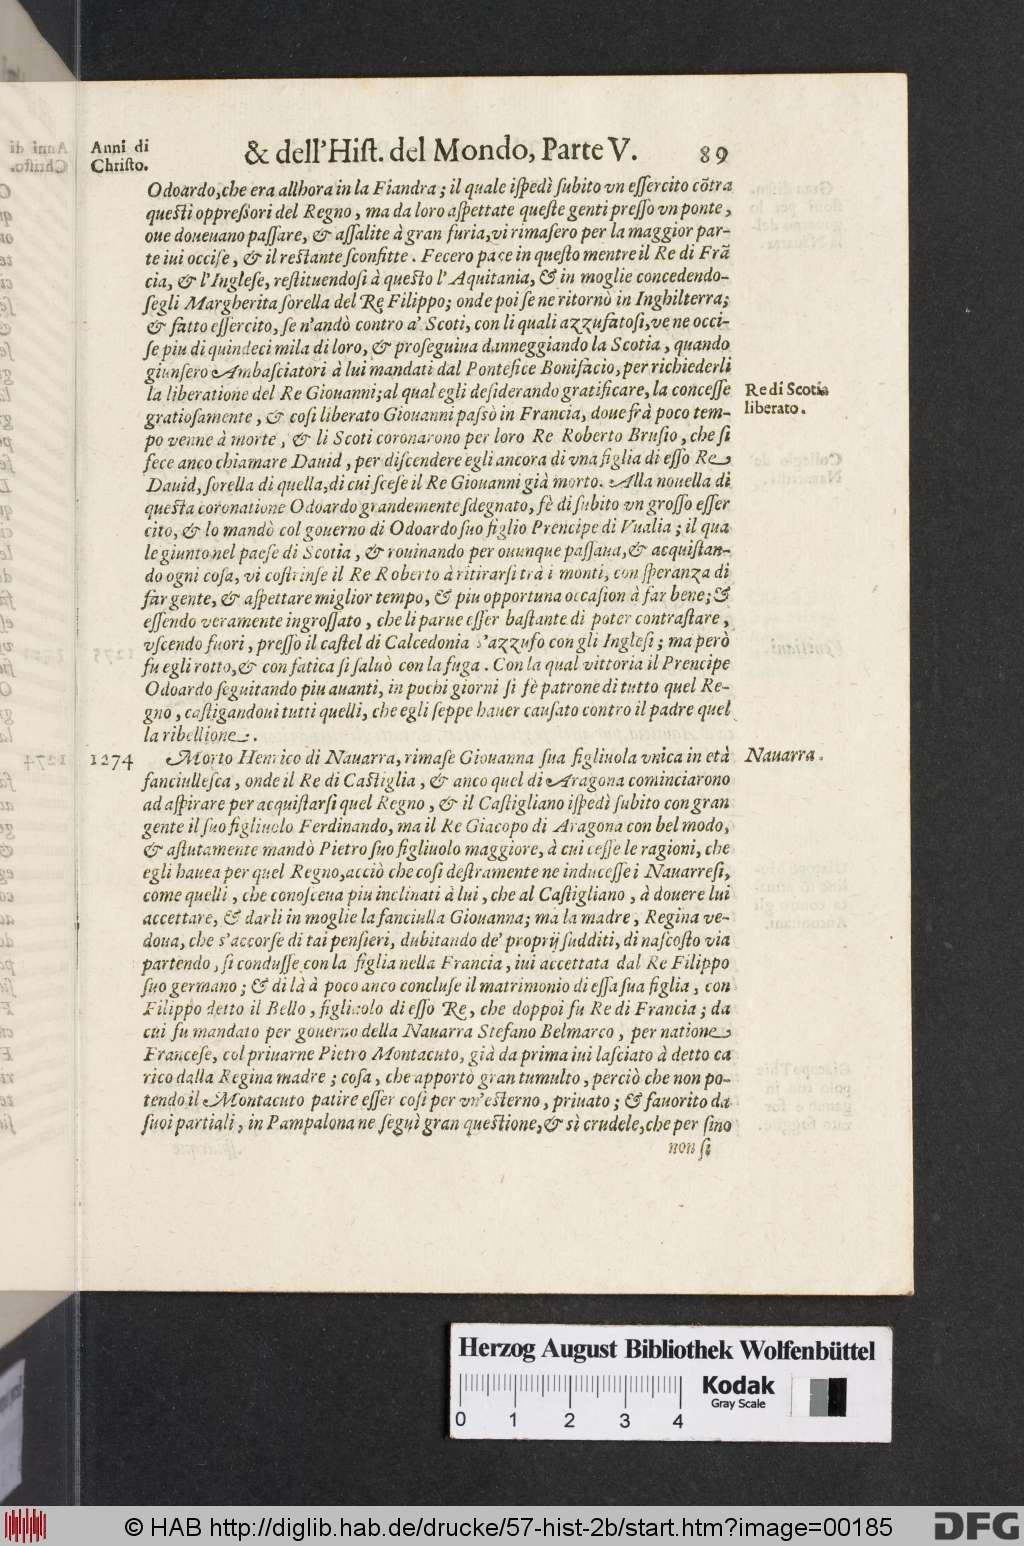 Anni di
Christo.
& dell'Hist. del Mondo, Parte V.
89
Odoardo, che era allhora in la Fiandra; il quale ispedì subito vn essercito cõtra
questi oppressori del Regno, ma da loro aspettate queste genti presso vn ponte,
oue doueuano passare, & assalite à gran furia, vi rimasero per la maggior par-
te iui occise, & il restante sconfitte. Fecero pace in questo mentre il Re di Frã
cia, & l'Inglese, restituendosi à questo l'Aquitania, & in moglie concedendo-
segli Margherita sorella del Re Filippo; onde poi se ne ritornò in Inghilterra;
& fatto essercito, se n'andò contro a' Scoti, con li quali azzufatosi, ve ne occi-
se piu di quindeci mila di loro, & proseguiua danneggiando la Scotia, quando
giunsero Ambasciatori à lui mandati dal Pontefice Bonifacio, per richiederli
la liberatione del Re Giouanni; al qual egli desiderando gratificare, la concesse
Re di Scotia
gratiosamente, & cosi liberato Giouanni passò in Francia, doue frà poco tem-
liberato.
po venne à morte, & li Scoti coronarono per loro Re Roberto Brusio, che si
fece anco chiamare Dauid, per discendere egli ancora di vna figlia di esso Re
Dauid, sorella di quella, di cui scese il Re Giouanni già morto. Alla nouella di
questa coronatione Odoardo grandemente sdegnato, fè di subito vn grosso esser
cito, & lo mandò col gouerno di Odoardo suo figlio Prencipe di Vualia; il qua
le giunto nel paese di Scotia, & rouinando per ouunque passaua, & acquistan-
do ogni cosa, vi costrinse il Re Roberto à ritirarsi trà i monti, con speranza di
far gente, & aspettare miglior tempo, & piu opportuna occasion à far bene; &
essendo veramente ingrossato, che li parue esser bastante di poter contrastare,
vscendo fuori, presso il castel di Calcedonia s'azzufò con gli Inglesi; ma però
fu egli rotto, & con fatica si saluò con la fuga. Con la qual vittoria il Prencipe
Odoardo seguitando piu auanti, in pochi giorni si fè patrone di tutto quel Re-
gno, castigandoui tutti quelli, che egli seppe hauer causato contro il padre quel
la ribellione.
1274
Morto Henrico di Nauarra, rimase Giouanna sua figliuola vnica in età
Nauarra.
fanciullesca, onde il Re di Castiglia, & anco quel di Aragona cominciarono
ad aspirare per acquistarsi quel Regno, & il Castigliano ispedì subito con gran
gente il suo figliuolo Ferdinando, ma il Re Giacopo di Aragona con bel modo,
& astutamente mandò Pietro suo figliuolo maggiore, à cui cesse le ragioni, che
egli hauea per quel Regno, acciò che cosi destramente ne inducesse i Nauarresi,
come quelli, che conosceua piu inclinati à lui, che al Castigliano, à douere lui
accettare, & darli in moglie la fanciulla Giouanna; ma la madre, Regina ve-
doua, che s'accorse di tai pensieri, dubitando de' proprij sudditi, di nascosto via
partendo, si condusse con la figlia nella Francia, iui accettata dal Re Filippo
suo germano; & di là à poco anco concluse il matrimonio di essa sua figlia, con
Filippo detto il Bello, figliuolo di esso Re, che doppoi fu Re di Francia; da
cui fu mandato per gouerno della Nauarra Stefano Belmarco, per natione
Francese, col priuarne Pietro Montacuto, già da prima iui lasciato à detto ca
rico dalla Regina madre; cosa, che apportò gran tumulto, perciò che non po-
tendo il Montacuto patire esser cosi per vn'esterno, priuato; & fauorito da
suoi partiali, in Pampalona ne seguì gran questione, & sì crudele, che per sino
non si
Herzog August Bibliothek Wolfenbüttel
Kodak
Gray Scale
0 1 2 3 4
© HAB http://diglib.hab.de/drucke/57-hist-2b/start.htm?image=00185
DFG